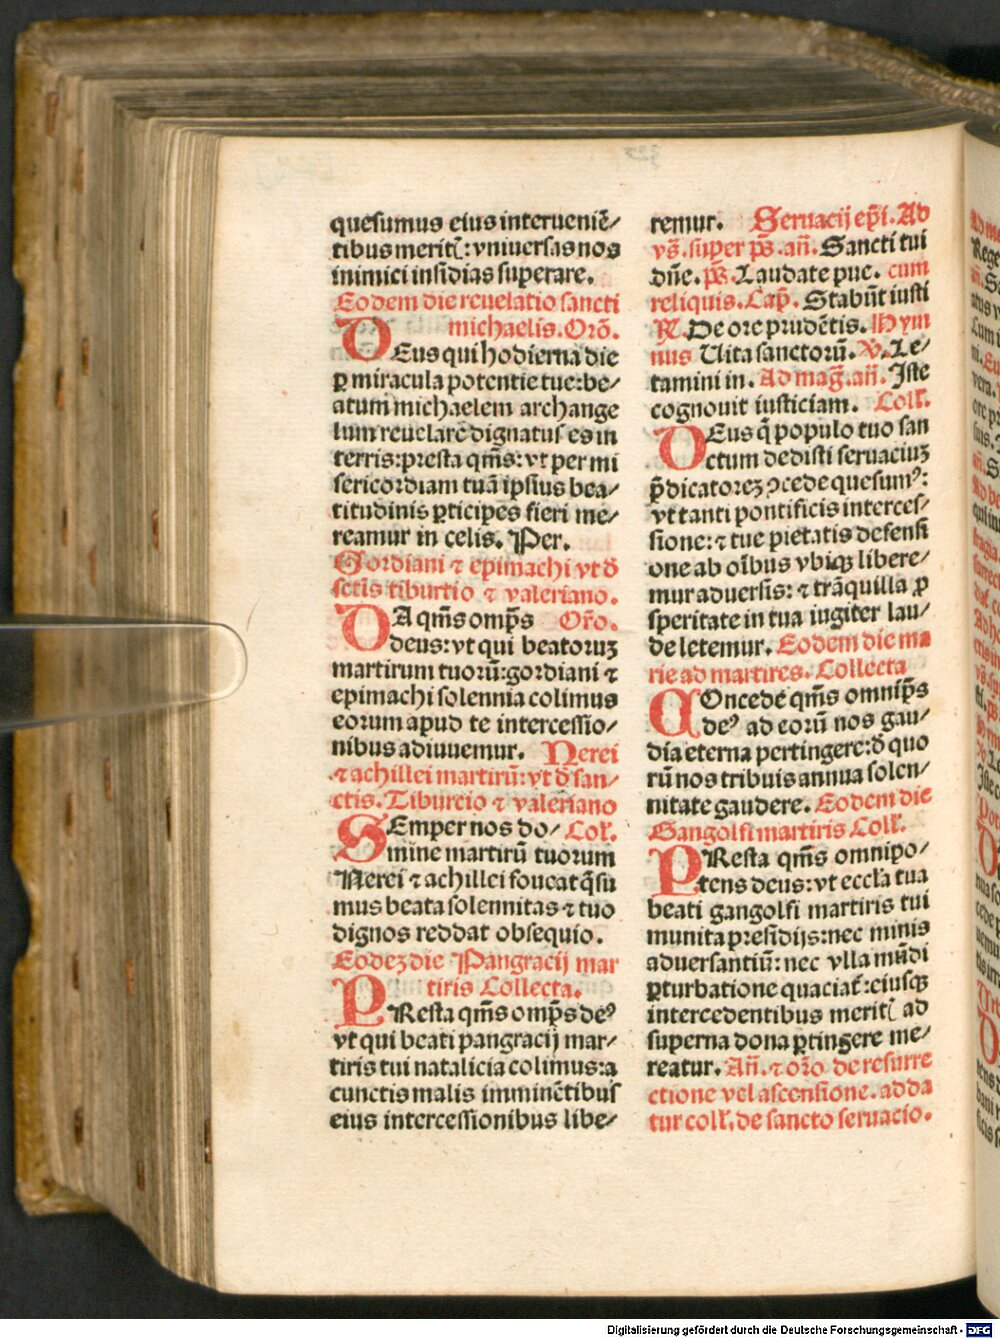 quesumus eius interueniẽ/
tibus meritꝭ: vniuersas nos
inimici insidias superare.
Eodem die reuelatio sancti
michaelis. Orõ.
DEus qui hodierna die
ꝑ miracula potentie tue: be/
atum michaelem archange
lum reuelarẽ dignatus es in
terris: presta qm̃s: vt per mi
sericordiam tuã ipsius bea/
titudinis ꝑticipes fieri me/
reamur in celis. Per.
Gordiani ⁊ epimachi vt ď
sctĩs tiburtio ⁊ valeriano.
DA qm̃s omp̃s Orõ.
deus: vt qui beatoruꝫ
martirum tuorũ: gordiani ⁊
epimachi solennia colimus
eorum apud te intercessio/
nibus adiuuemur. Nerei
⁊ achillei martirũ: vt ď san/
ctis. Tiburcio ⁊ valeriano
SEmper nos do/ Col̃.
mine martirũ tuorum
Nerei ⁊ achillei foueat q̃su
mus beata solennitas ⁊ tuo
dignos reddat obsequio.
Eodeꝫ die Pangracij mar
tiris Collecta.
PResta qm̃s omp̃s deꝰ
vt qui beati pangracij mar/
tiris tui natalicia colimus: a
cunctis malis imminẽtibus
eius intercessionibus libe/
remur. Seruacij ep̃i. Ad
vš. super ps̃. añ. Sancti tui
dñe. ps̃. Laudate pue. cum
reliquis. Cap̃. Stabũt iusti
℟. De ore prudẽtis. Hym
nus Uita sanctorũ. ℣. Le/
tamini in. Ad mag̃. añ. Iste
cognouit iusticiam. Coll̃.
DEus q̃ populo tuo san
ctum dedisti seruaciuꝫ
p̃dicatoreꝫ ꝯcede quesumꝰ:
vt tanti pontificis interces/
sione: ⁊ tue pietatis defensi
one ab oĩbus vbiqꝫ libere/
mur aduersis: ⁊ trãquilla ꝓ
speritate in tua iugiter lau/
de letemur. Eodem die ma
rie ad martires. Collecta
COncede qm̃s omnip̃s
deꝰ ad eorũ nos gau/
dia eterna pertingere: ď quo
rũ nos tribuis annua solen/
nitate gaudere. Eodem die
Gangolfi martiris Coll̃.
PResta qm̃s omnipo/
tens deus: vt eccl̃a tua
beati gangolfi martiris tui
munita presidijs: nec minis
aduersantiũ: nec vlla mũdi
ꝑturbatione quaciat̃: eiusqꝫ
intercedentibus meritꝭ ad
superna dona ꝑtingere me/
reatur. Añ. ⁊ orõ de resurre
ctione vel ascensione. adda
tur coll̃. de sancto seruacio.
Digitalisierung gefördert durch die Deutsche Forschungsgemeinschaft - DFG